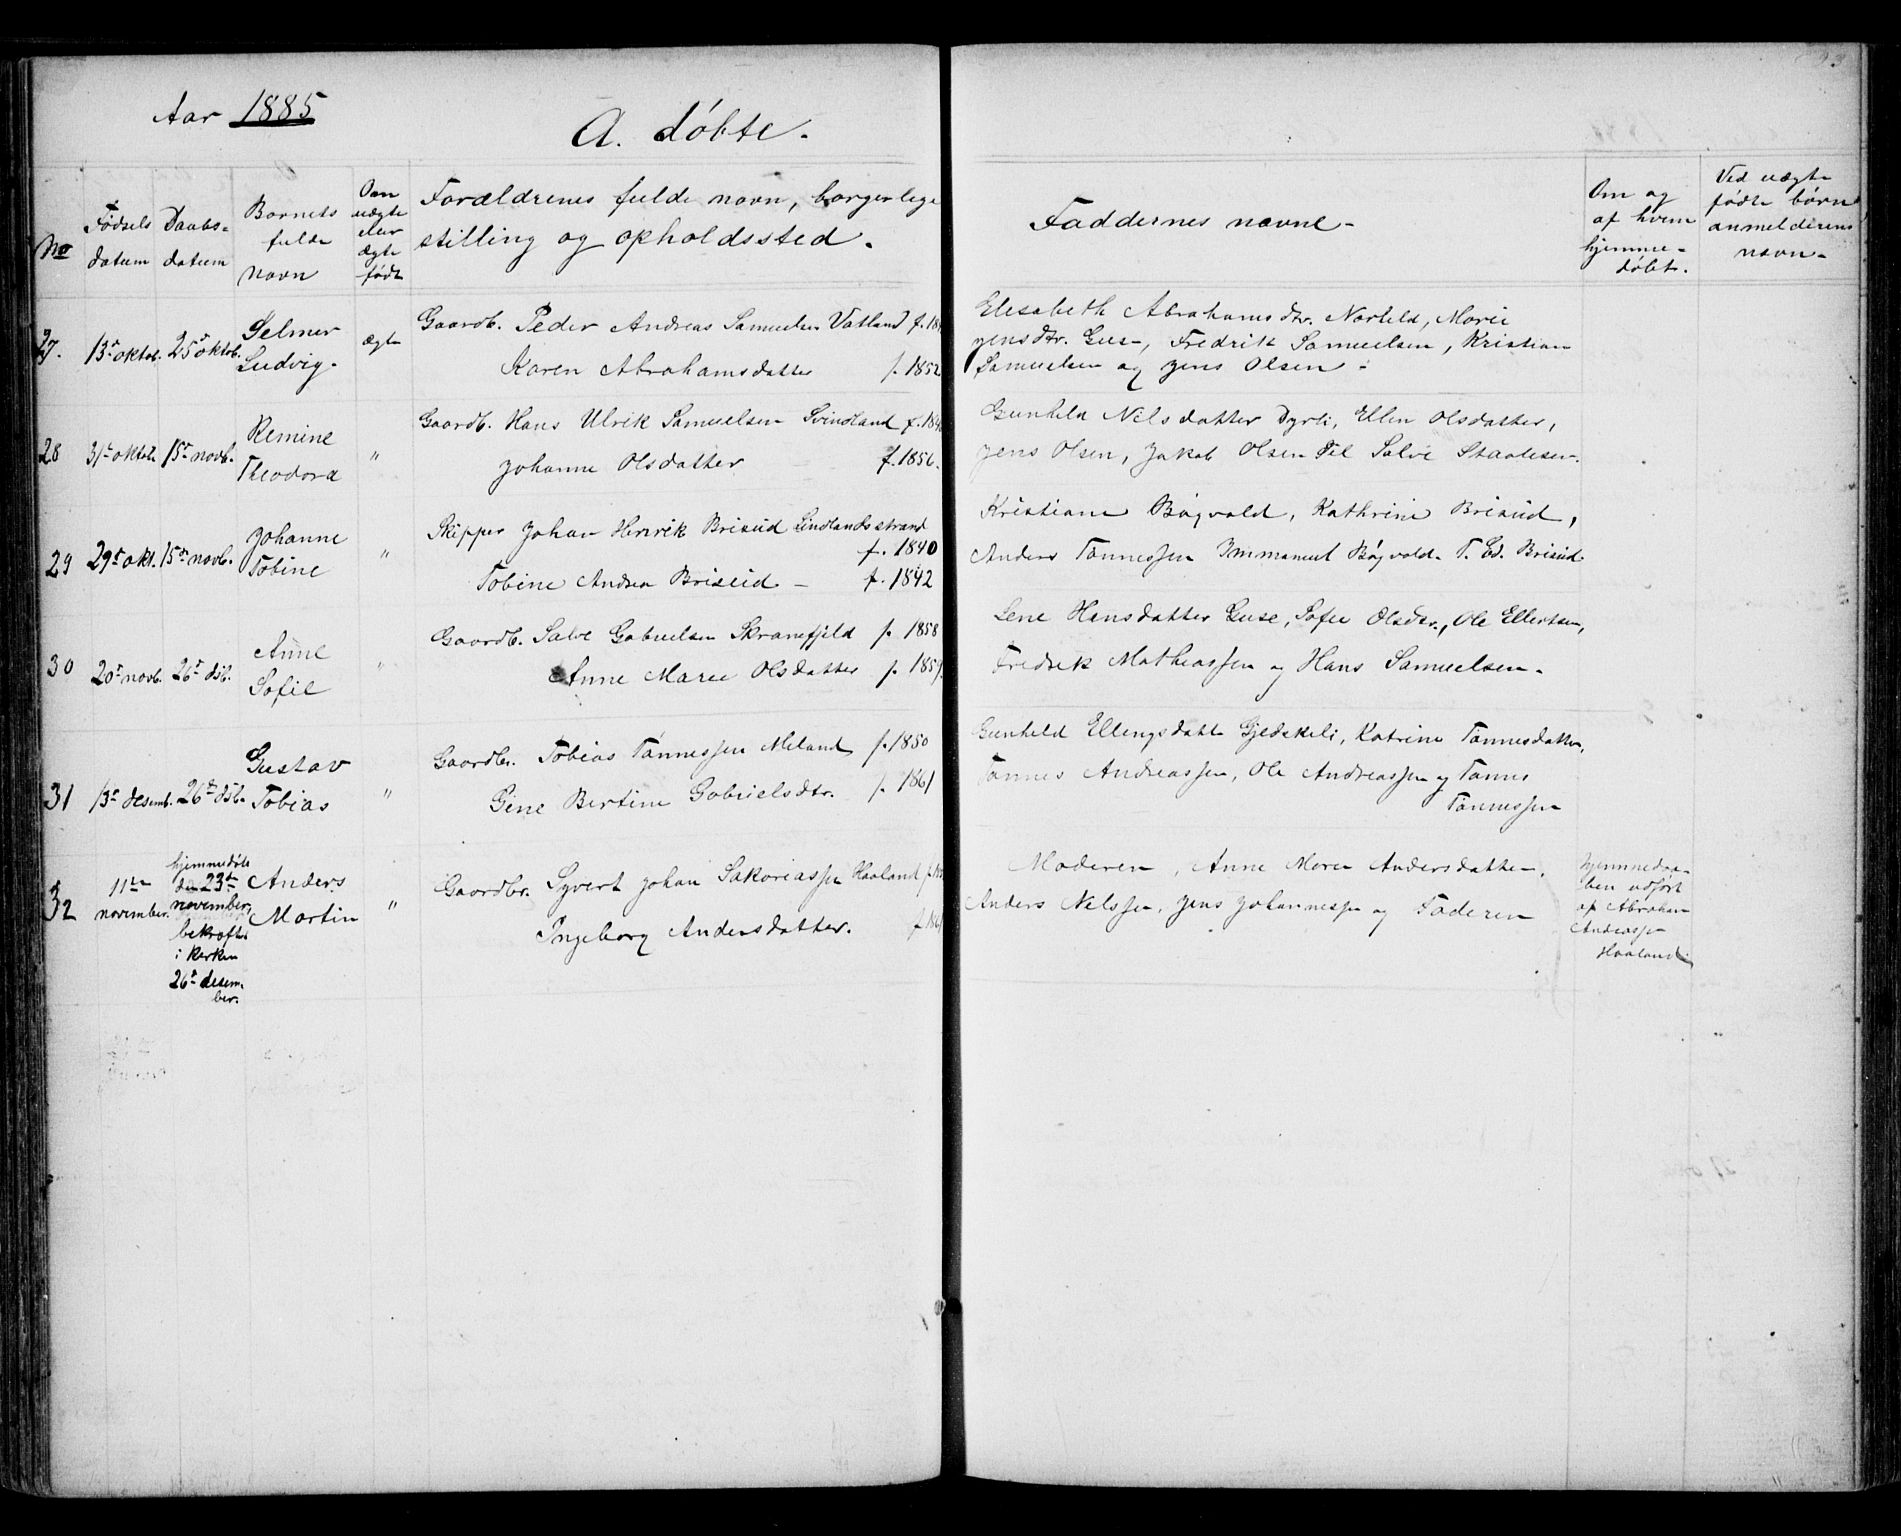 Aar 1885
A. døbte.
No
Fødsels
datum
Daabs-
datum
Barnets
fulde
navn
Om
uægte
eller
ægte
født
Forældrenes fulde navn, borgerlige
stilling og opholdssted.
Faddernes navne-
Om og
af hvem
hjemme-
døbt.
Ved uægte
fødte børn
anmelderens
navn-
27. 13de oktob. 25de oktob. Selmer
Ludvig-
ægte
Gaardb. Peder Andreas Samuelsen Vatland f. 18
Karen Abrahamsdatter f. 1852
Elisabeth Abrahamsdtr. Marie
Jensdtr. Guse, Fredrik Samuelsen, Kristian
Samuelsen og Jens Olsen-
28 31te oktob. 15de novb. Remine
Theodora "
Gaardb. Hans Ulrik Samuelsen Svindland f. 18
Johanne Olsdatter f. 1856.
Gunhild Nilsdatter Dyrli, Ellen Olsdatter,
Jens Olsen, Jakob Olsen Salve Staalesen.
29 29de okt. 15de novb. Johanne
Tobine "
Skipper Johan Henrik Briseid Lindlandsstrand
f. 1840
Tobine Andrea Briseid - f. 1842
Kristiane Bøgvald, Kathrine Briseid,
Anders Tønnessen Immanuel Bøgvald. T. Ed. Briseid
30 20de novb. 26de dsb. Anne
Sofie "
Gaardb. Salve Gabrielsen Skranefjeld f. 1858
Anne Marie Olsdatter f. 1859.
Lene Hansdatter Guse, Sofie Olsdtr., Ole Ellertsen,
Fredrik Mathiassen og Hans Samuelsen-
31 13de desemb. 26de dsb. Gustav
Tobias "
Gaardbr. Tobias Tønnessen Meland f. 1850
Gine Bertine Gabrielsdtr. f. 1861
Gunhild Ellingsdatt Gjedskeli, Katrine Tønnesdatter,
Tønnes Andreassen, Ole Andreassen og Tønnes
Tønnessen
32 11te
november.
hjemmedøbt
den 23de
november,
bekræftet
i kirken
26de desem-
ber.
Anders
Martin "
Gaardbr. Syvert Johan Sakariassen Haaland f.
Ingeborg Andersdatter. f. 186
Moderen, Anne Maren Andersdatter,
Anders Nilssen, Jens Johannessen og Faderen
Hjemmedaa-
ben udført
af Abraham
Andreassen
Haaland